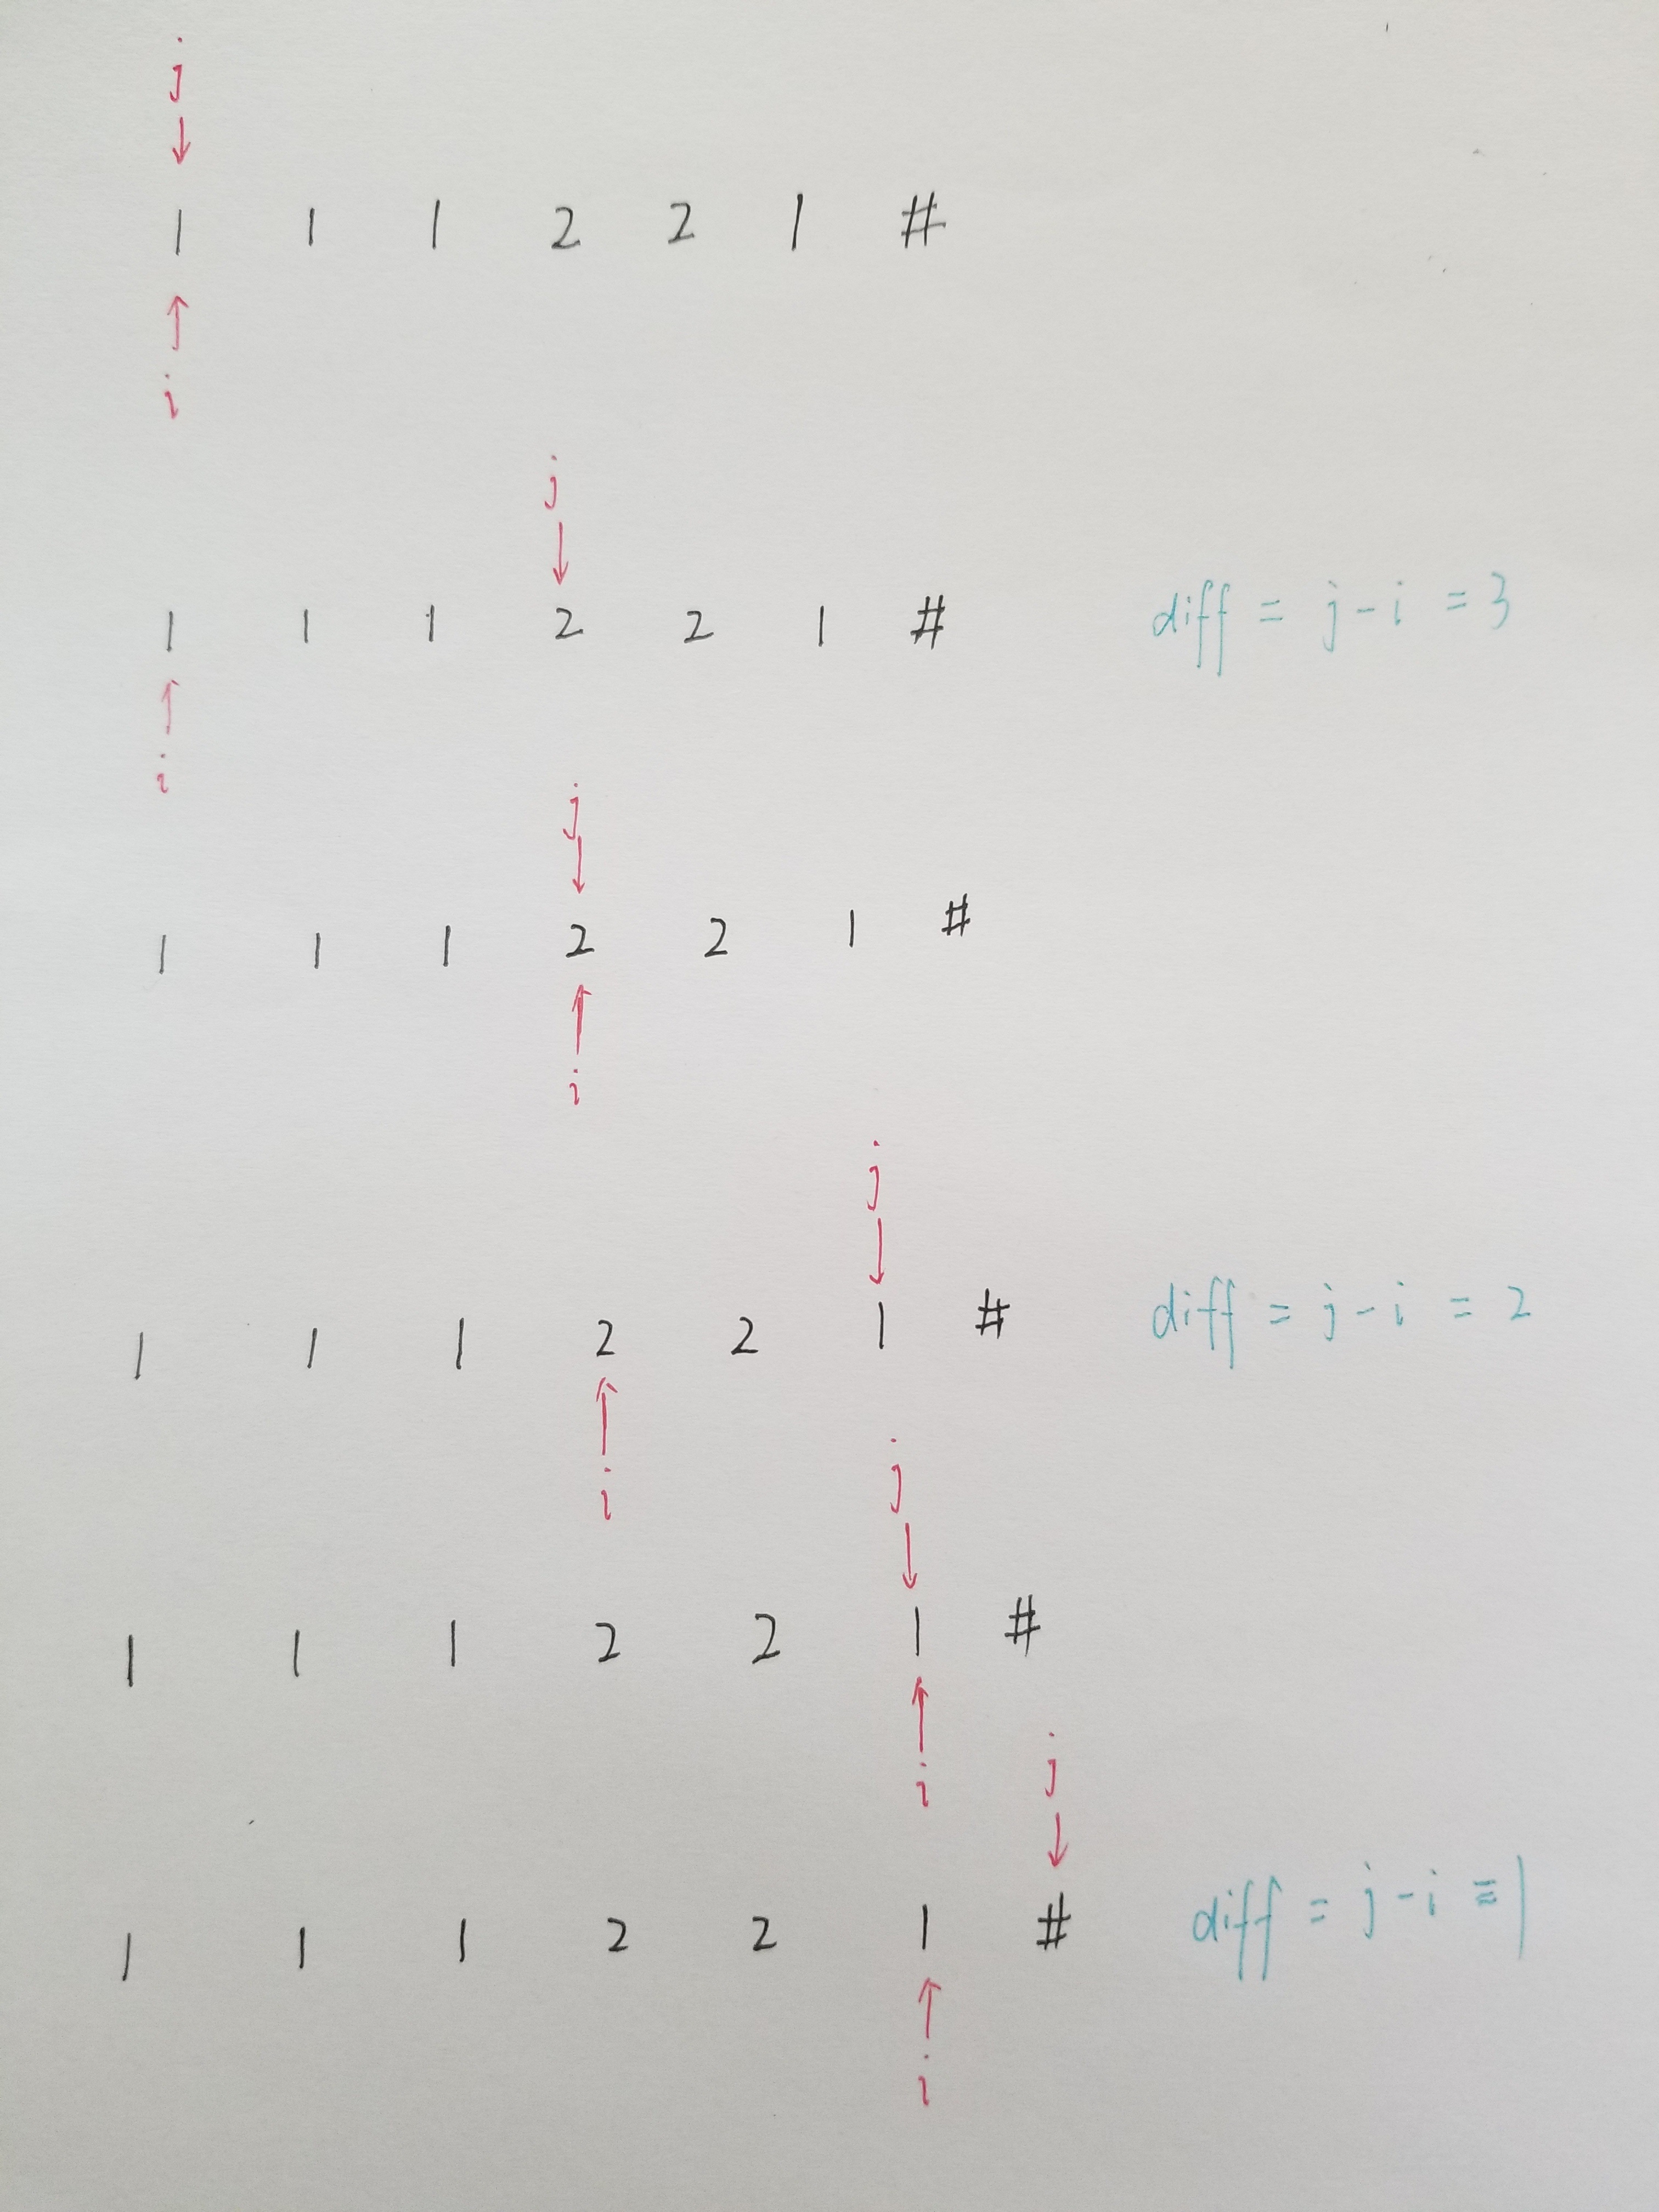 j
↓
1 1 1 2 2 1 #
↑
i
j
↓
1 1 1 2 2 1 # diff = j - i = 3
↑
i
j
↓
1 1 1 2 2 1 #
↑
i
j
↓
1 1 1 2 2 1 # diff = j - i = 2
↑
i
j
↓
1 1 1 2 2 1 #
↑
i
j
↓
1 1 1 2 2 1 # diff = j - i = 1
↑
i